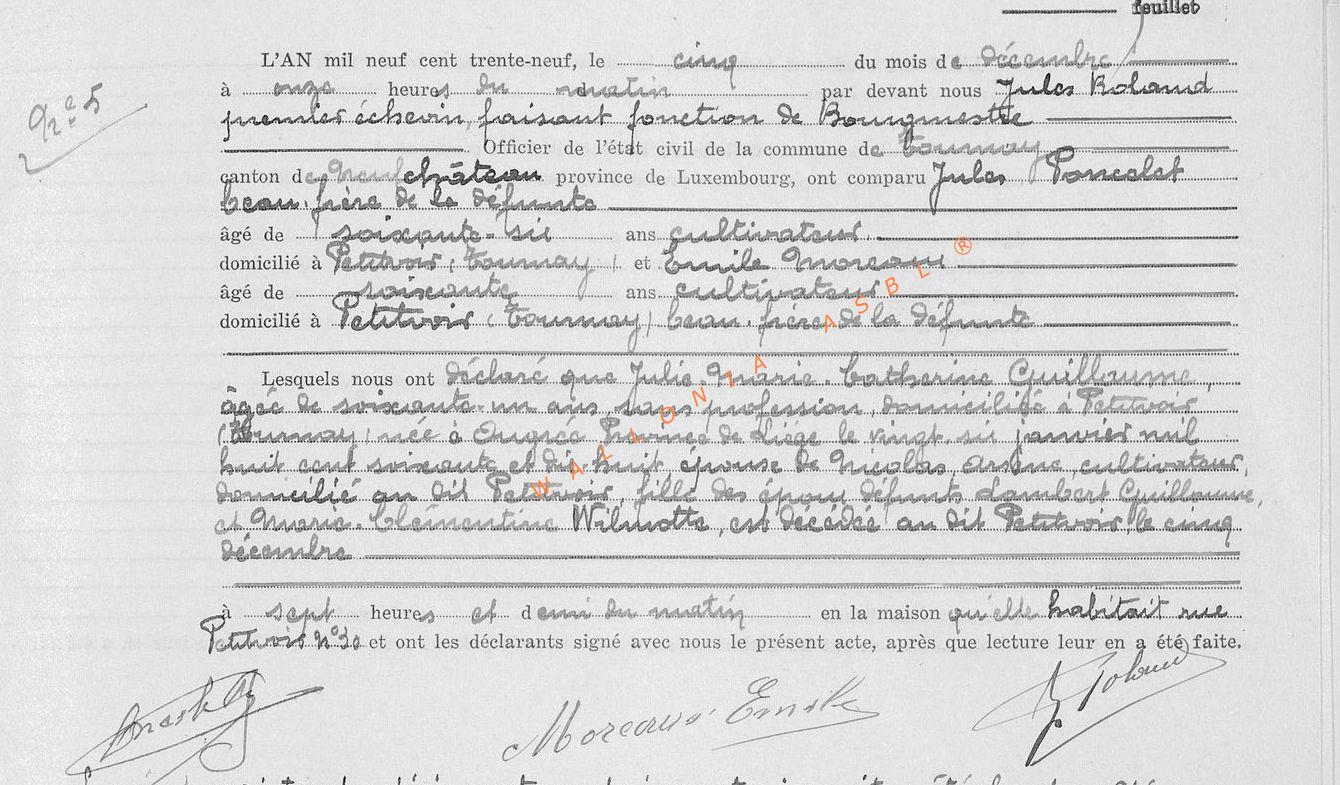 feuillet
L'AN mil neuf cent trente-neuf, le cinq du mois de décembre
N° 5
à onze heures du matin par devant nous Jules Roland
premier échevin, faisant fonction de Bourgmestre
Officier de l'état civil de la commune de Tournay
canton de Neufchâteau province de Luxembourg, ont comparu Jules Poncelet
beau-frère de la défunte
âgé de soixante-six ans cultivateur
domicilié à Petitvoir (Tournay) et Emile Moreaux
âgé de soixante ans cultivateur
domicilié à Petitvoir (Tournay) beau-frère de la défunte
Lesquels nous ont déclaré que Julie-Marie-Catherine Guillaume,
âgée de soixante-un ans, sans profession, domiciliée à Petitvoir
(Tournay) née à Ougrée Province de Liége le vingt-six janvier mil
huit cent soixante et dix-huit, épouse de Nicolas, Arsène, cultivateur,
domicilié au dit Petitvoir, fille des époux défunts Lambert Guillaume,
et Marie-Clémentine Wilmotte, est décédée au dit Petitvoir, le cinq
décembre
à sept heures et demi du matin en la maison qu'elle habitait rue
Petitvoir N° 30 et ont les déclarants signé avec nous le présent acte, après que lecture leur en a été faite.
Moreaux Emile
J Roland
WALLONIA ASBL ®